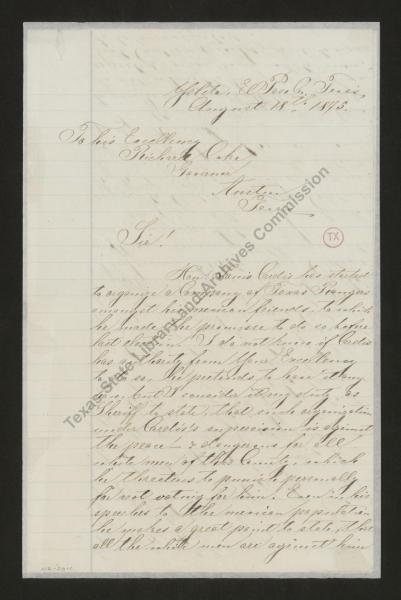 Ysleta, El Paso Co. Texas,
August 18th 1875.
To his Excellency
Richard Coke
Governor
Austin
Texas
Sir!
TX
Hon. Louis Cardis has started
to organize a Company of Texas Rangers
amongst his mexican friends, to which
he made the promise to do so before
last election. I do not know if Cardis
has authority from Your Excellency
to do so, he pretends to have
but I consider it my duty as
Sheriff to state, that such organization
under Cardis's supervision is against
the peace & dangerous for all
white men of this County which
he threatens to punish personally
for not voting for him. Even in his
speeches to the mexican population
he makes a great point to state, that
all the white men are against him
Texas State Library and Archives Commission